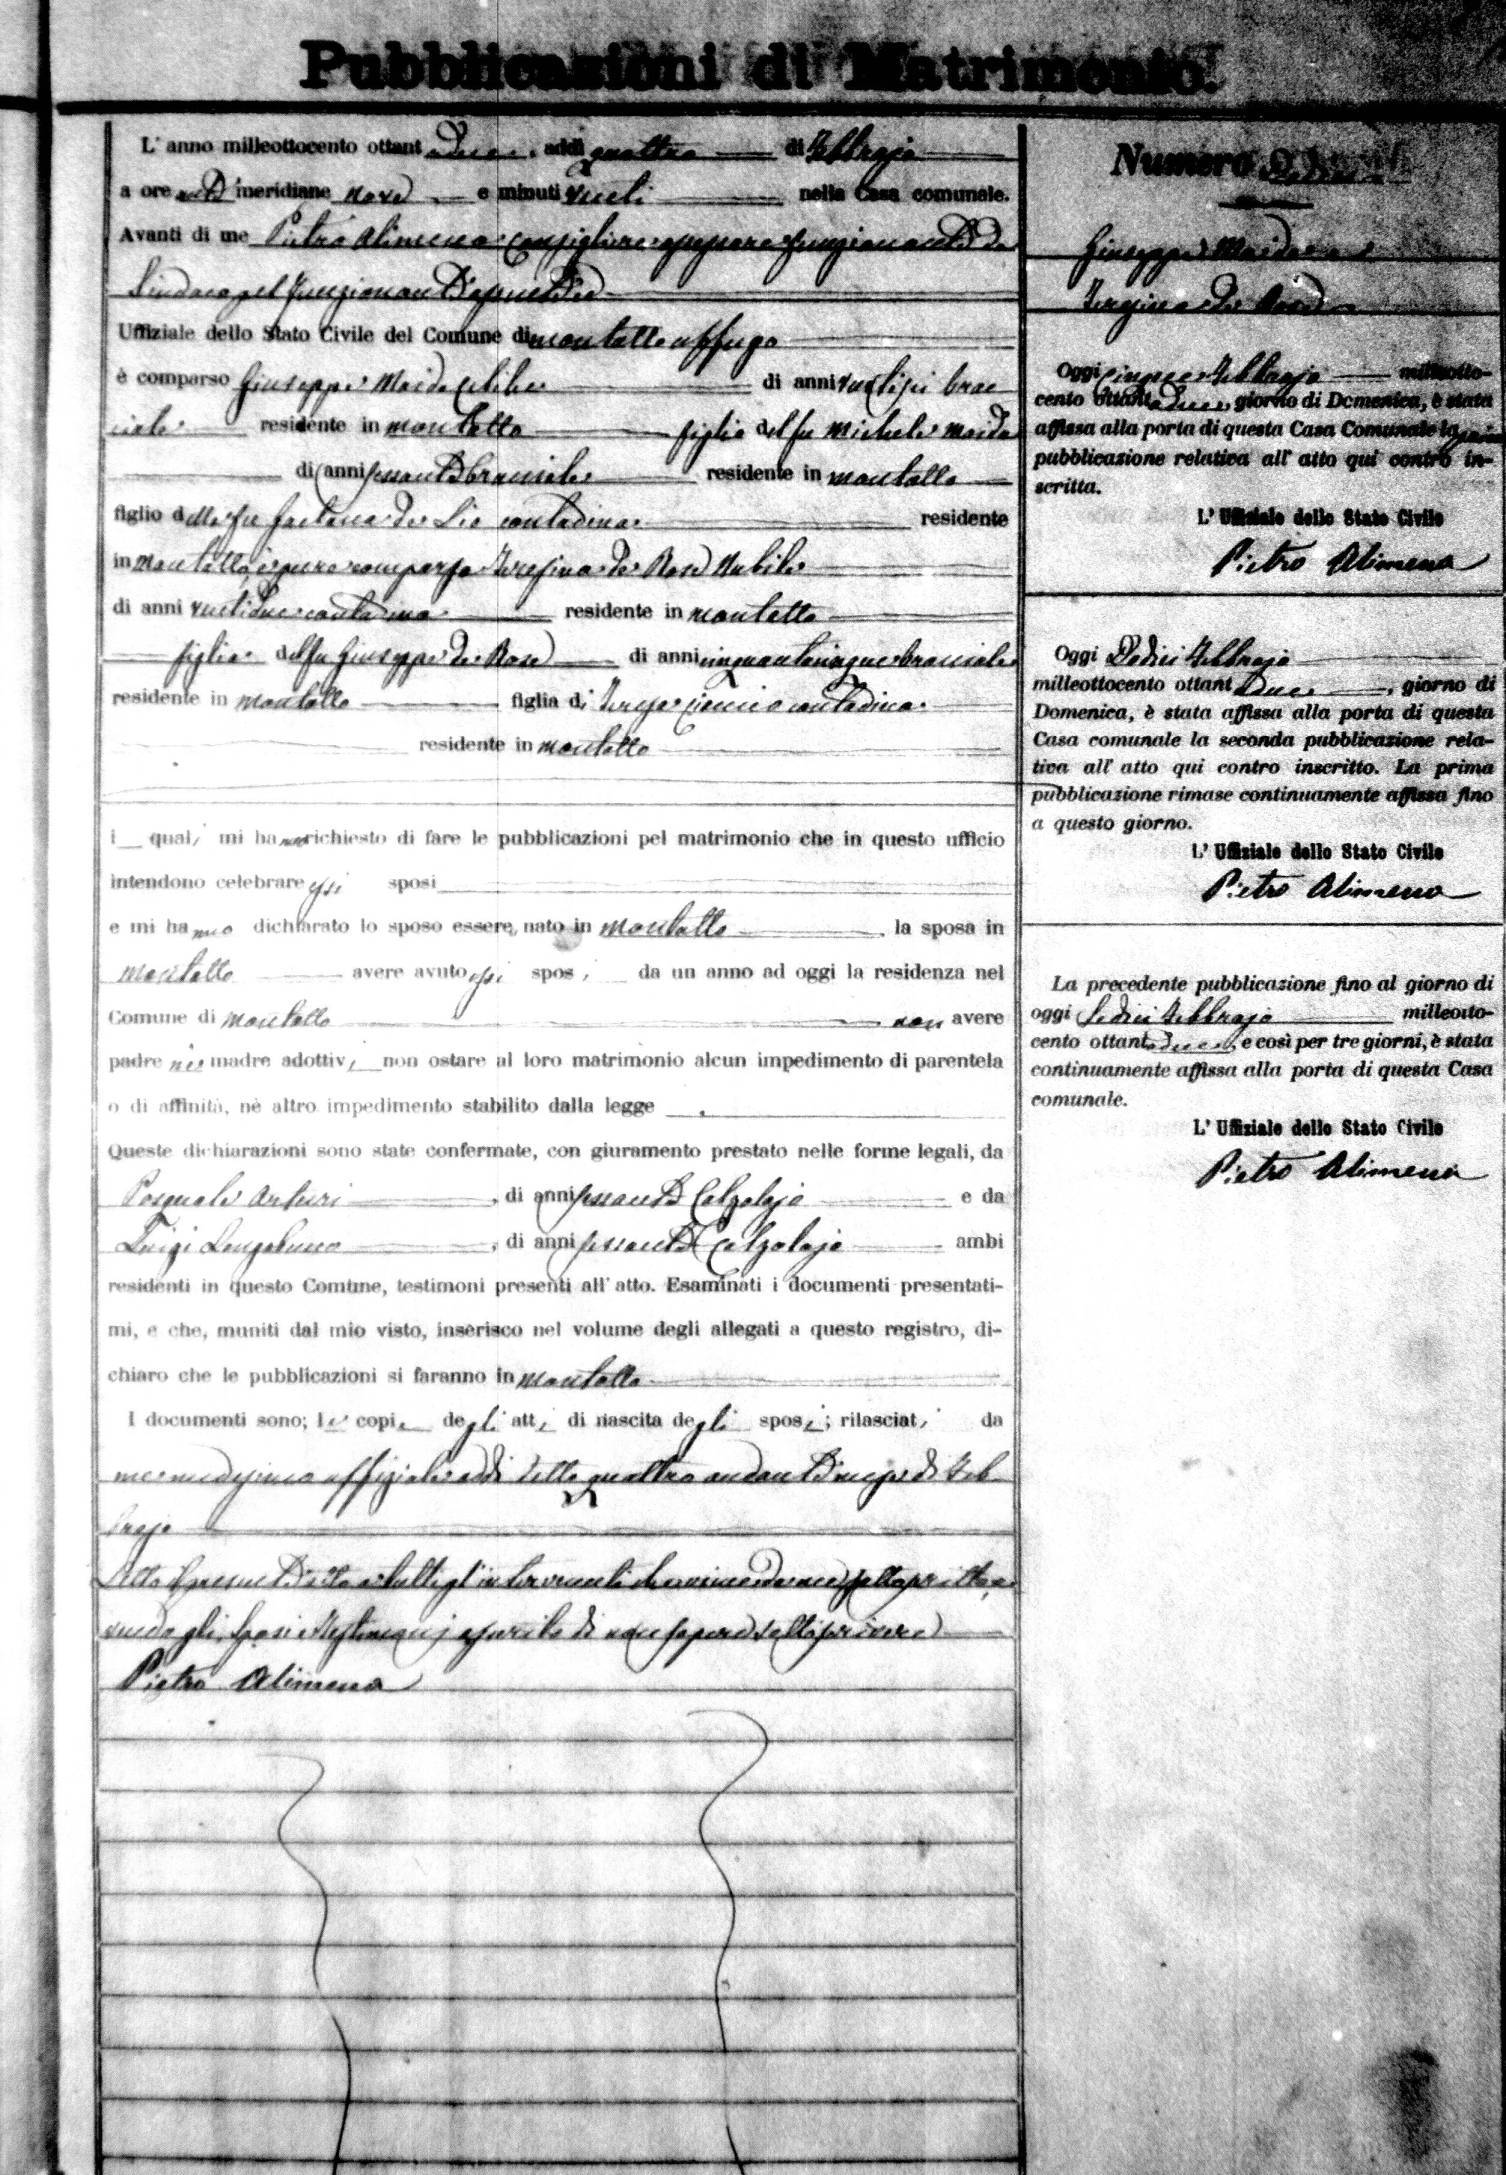 Pubblicazioni di Matrimonio.
L' anno milleottocento ottantadue, addì quattro di Febbrajo
a ore anti meridiane nove e minuti venti nella Casa comunale.
Avanti di me Pietro Alimena Consigliere assessore funzionante da
Sindaco pel funzionante assente
Uffiziale dello Stato Civile del Comune di Montalto Uffugo
è comparso Giuseppe Maida celibe di anni ventisei brac
ciale residente in Montalto figlio del fu Michele Maida
di anni sessanta bracciale residente in Montalto
figlio della fu Gaetana de Lio contadina residente
in Montalto, è pure comparsa Teresina de Rose Nubile
di anni ventidue contadina residente in Montalto
figlia del fu Giuseppe de Rose di anni cinquantacinque bracciale
residente in Montalto figlia di Teresa contadina
residente in Montalto
i quali mi hanno richiesto di fare le pubblicazioni pel matrimonio che in questo ufficio
intendono celebrare essi sposi
e mi hanno dichiarato lo sposo essere nato in Montalto la sposa in
Montalto avere avuto essi sposi da un anno ad oggi la residenza nel
Comune di Montalto non avere
padre nè madre adottivi non ostare al loro matrimonio alcun impedimento di parentela
o di affinità, nè altro impedimento stabilito dalla legge
Queste dichiarazioni sono state confermate, con giuramento prestato nelle forme legali, da
Pasquale Arturi, di anni sessanta Calzolajo e da
Luigi Longobucco, di anni sessanta Calzolajo ambi
residenti in questo Comune, testimoni presenti all' atto. Esaminati i documenti presentati-
mi, e che, muniti dal mio visto, inserisco nel volume degli allegati a questo registro, di-
chiaro che le pubblicazioni si faranno in Montalto
I documenti sono; le copie degli atti di nascita degli sposi; rilasciati da
me medesimo uffiziale addì detto quattro andante mese di Feb
brajo
Letto il presente atto a tutti gl'intervenuti da me sottoscritto a
vendo gli sposi e testimonj asserito di non sapere sottoscrivere
Pietro Alimena
Numero Dodici
Giuseppe Maida
Teresina de Rose
Oggi cinque Febbrajo milleotto-
cento ottantadue, giorno di Domenica, è stata
affissa alla porta di questa Casa Comunale la prima
pubblicazione relativa all' atto qui contro in-
scritta.
L' Uffiziale dello Stato Civile
Pietro Alimena
Oggi Dodici Febbrajo
milleottocento ottantadue, giorno di
Domenica, è stata affissa alla porta di questa
Casa comunale la seconda pubblicazione rela-
tiva all' atto qui contro inscritto. La prima
pubblicazione rimase continuamente affissa fino
a questo giorno.
L' Uffiziale dello Stato Civile
Pietro Alimena
La precedente pubblicazione fino al giorno di
oggi Sedici Febbrajo milleotto-
cento ottantadue, e così per tre giorni, è stata
continuamente affissa alla porta di questa Casa
comunale.
L' Uffiziale dello Stato Civile
Pietro Alimena